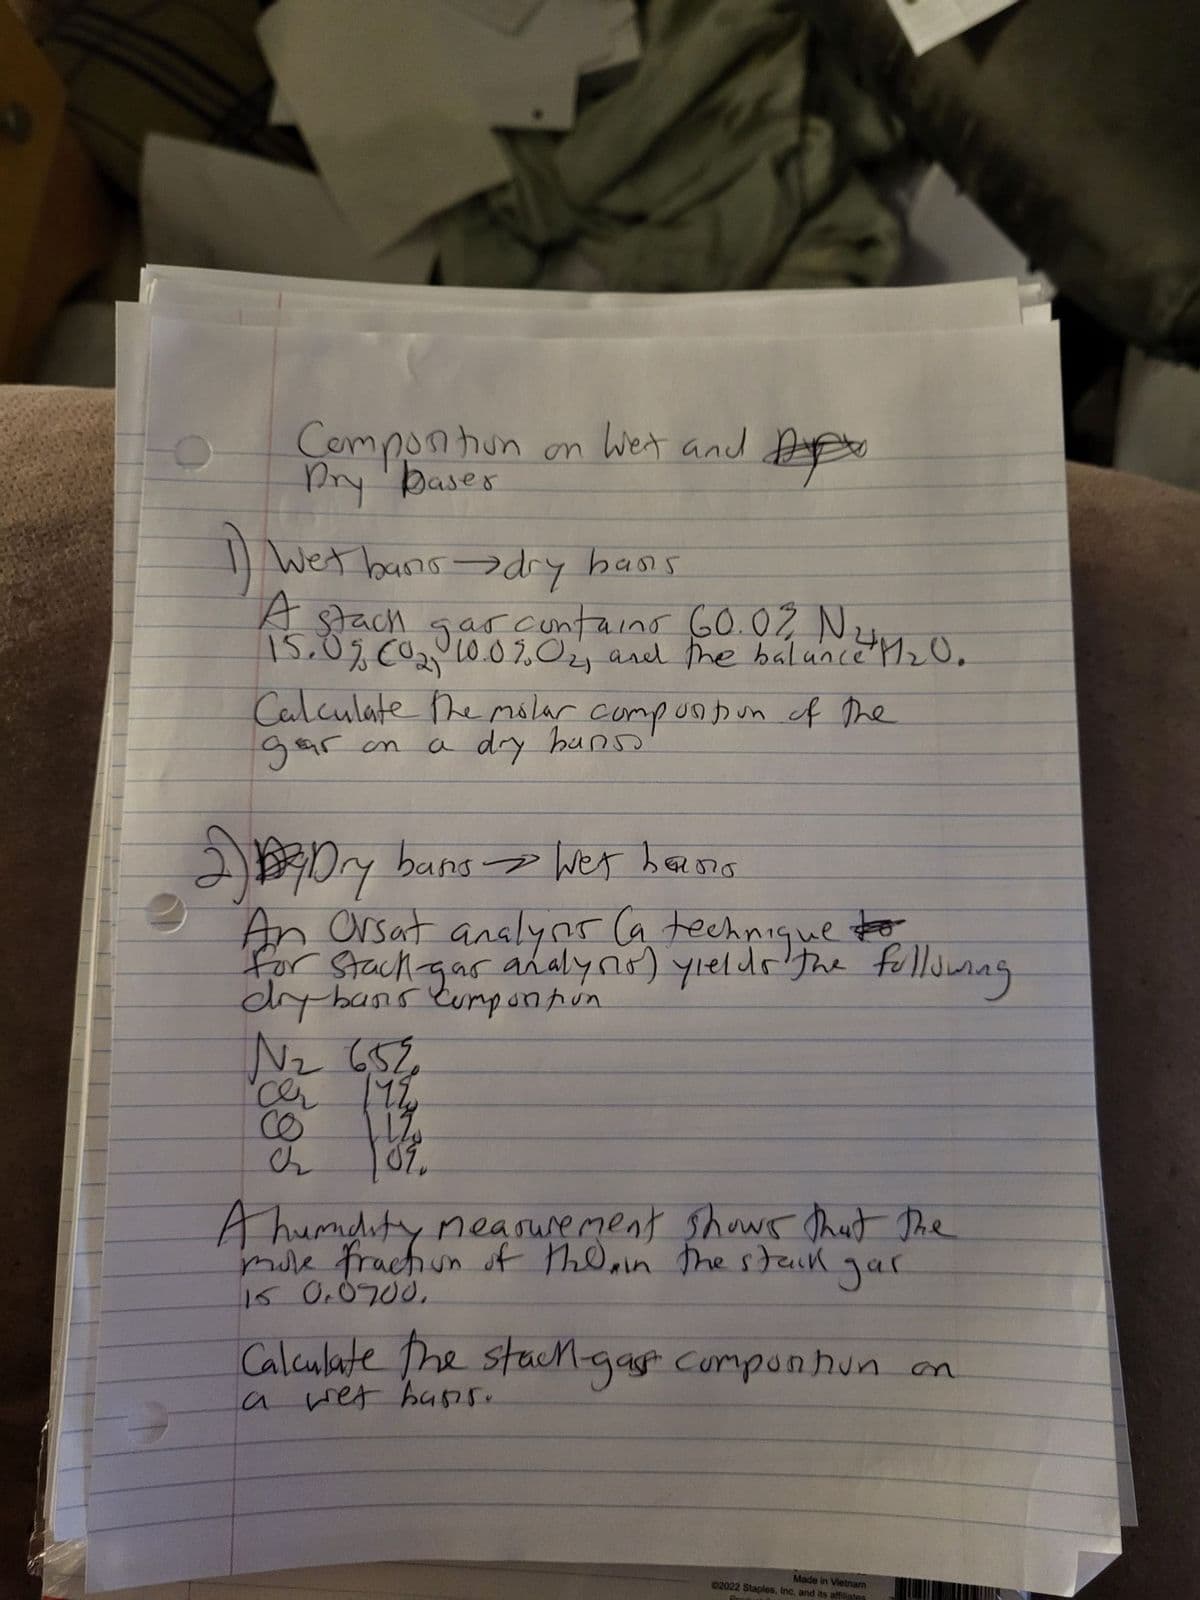 Composition on Wet and
Dry bases
1) Wet basis → dry basis
A stack gas contains 60.0% N2,
15.0% CO2, 10.0% O2, and the balance H2O.
Calculate the molar composition of the
gas on a dry basis
2) Dry basis → Wet basis
An Orsat analysis (a technique to
for stack-gas analysis) yields the following
dry-basis composition
N2 65%
CO2
CO
O2 10%
A humidity measurement shows that the
mole fraction of H2O in the stack gas
is 0.0700.
Calculate the stack-gas composition on
a wet basis.
Made in Vietnam
©2022 Staples, Inc. and its affiliates